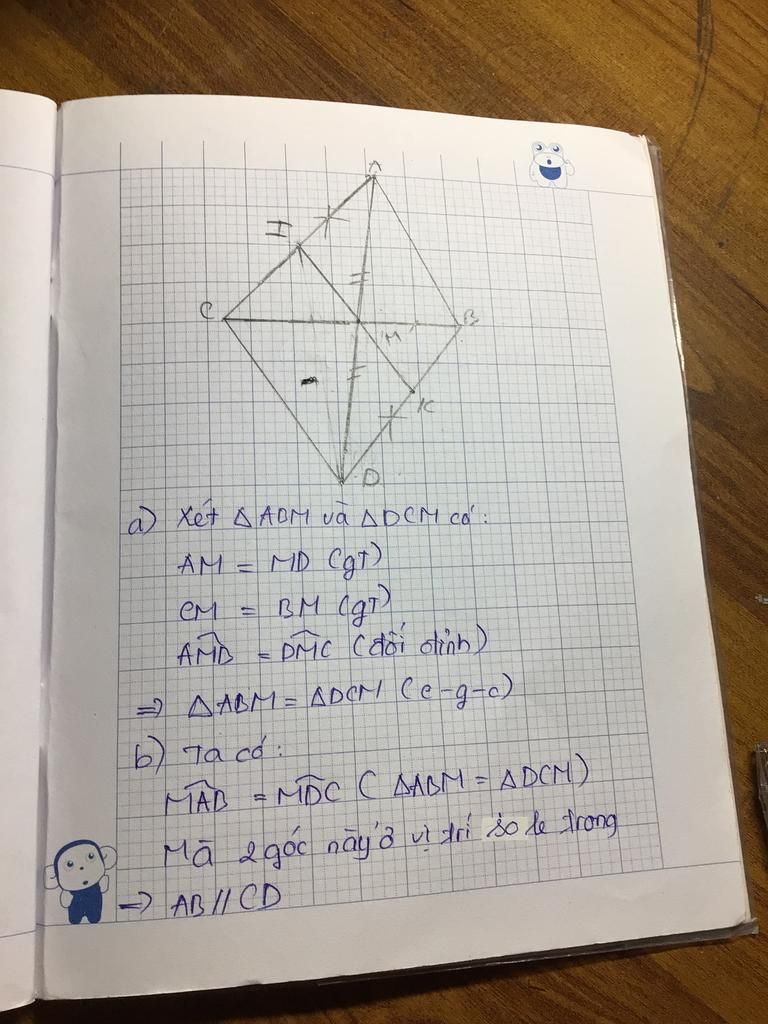 A
I
C
B
M
K
D
a) Xét ΔABM và ΔDCM có:
AM = MD (gT)
CM = BM (gT)
AMB = DMC (đối đỉnh)
⇒ ΔABM = ΔDCM (c-g-c)
b) Ta có:
MAB = MDC ( ΔABM = ΔDCM)
Mà 2 góc này ở vị trí so le trong
⇒ AB // CD